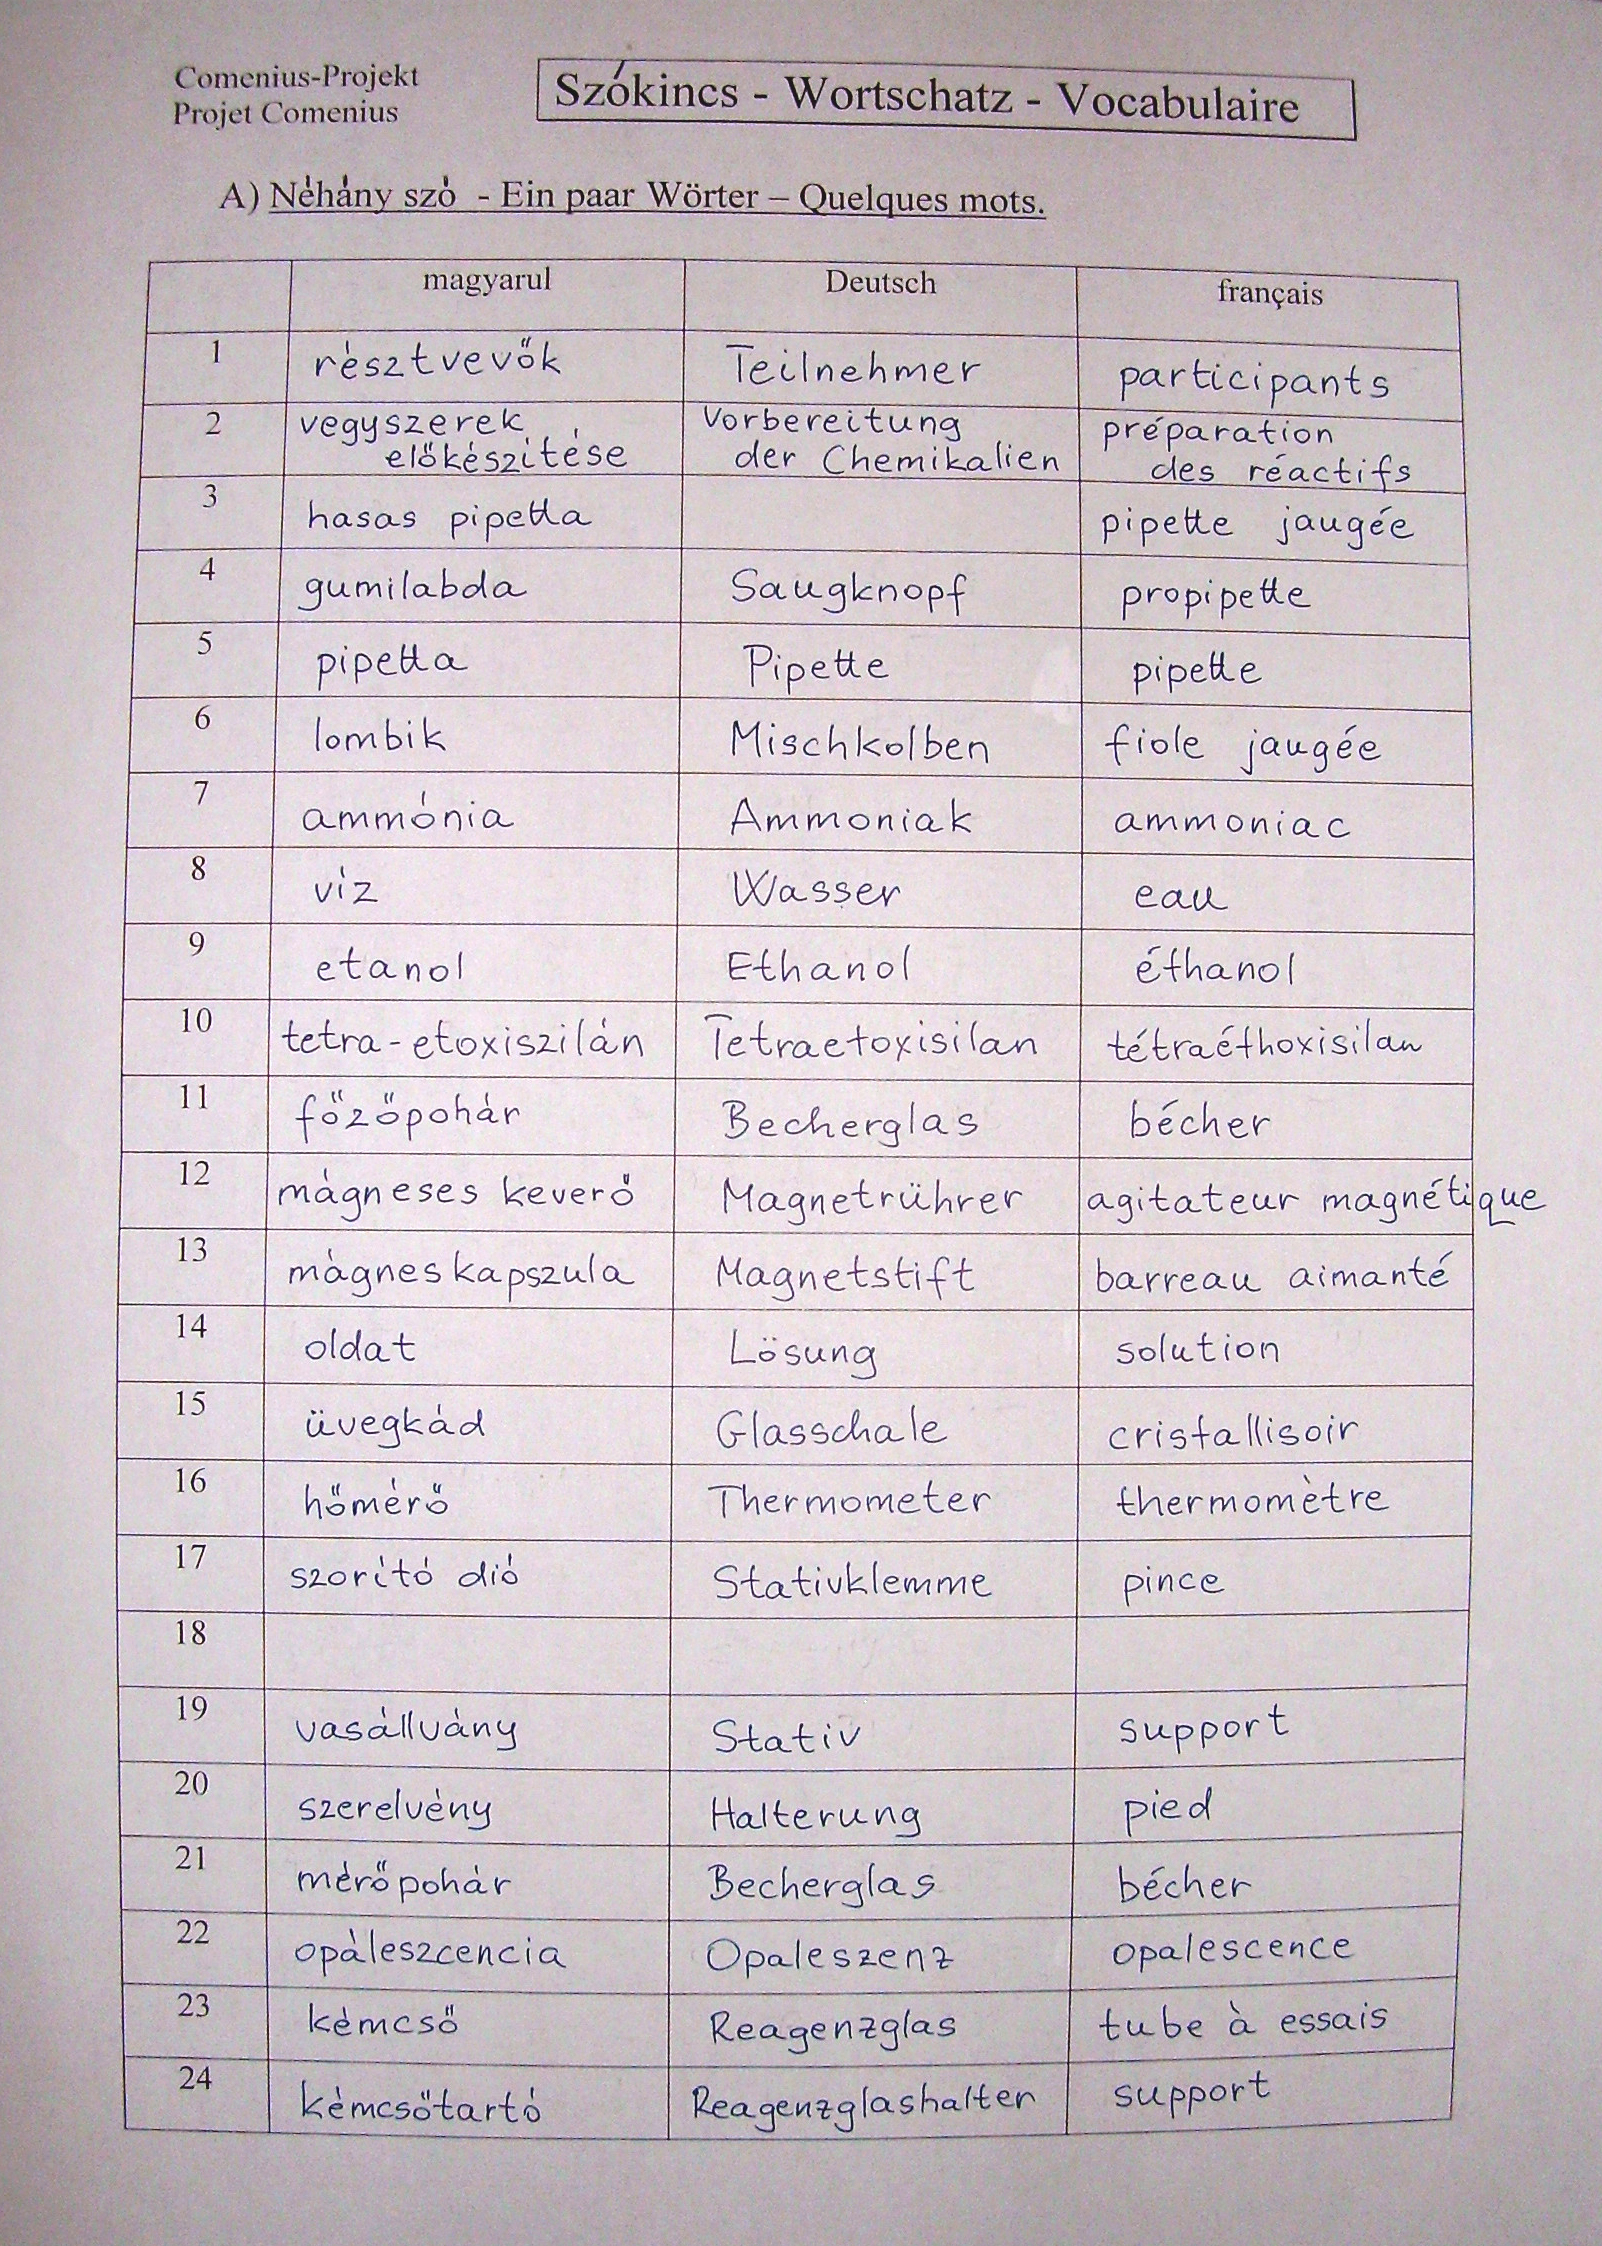 Comenius-Projekt
Projet Comenius
Szókincs - Wortschatz - Vocabulaire
A) Néhány szó - Ein paar Wörter – Quelques mots.
magyarul Deutsch français
1 résztvevők Teilnehmer participants
2 vegyszerek Vorbereitung préparation
előkészítése der Chemikalien des réactifs
3 hasas pipetta pipette jaugée
4 gumilabda Saugknopf propipette
5 pipetta Pipette pipette
6 lombik Mischkolben fiole jaugée
7 ammónia Ammoniak ammoniac
8 víz Wasser eau
9 etanol Ethanol éthanol
10 tetra-etoxiszilán Tetraetoxisilan tétraéthoxisilan
11 főzőpohár Becherglas bécher
12 mágneses keverő Magnetrührer agitateur magnétique
13 mágneskapszula Magnetstift barreau aimanté
14 oldat Lösung solution
15 üvegkád Glasschale cristallisoir
16 hőmérő Thermometer thermomètre
17 szorító dió Stativklemme pince
18
19 vasállvány Stativ support
20 szerelvény Halterung pied
21 mérőpohár Becherglas bécher
22 opáleszcencia Opaleszenz opalescence
23 kémcső Reagenzglas tube à essais
24 kémcsőtartó Reagenzglashalter support